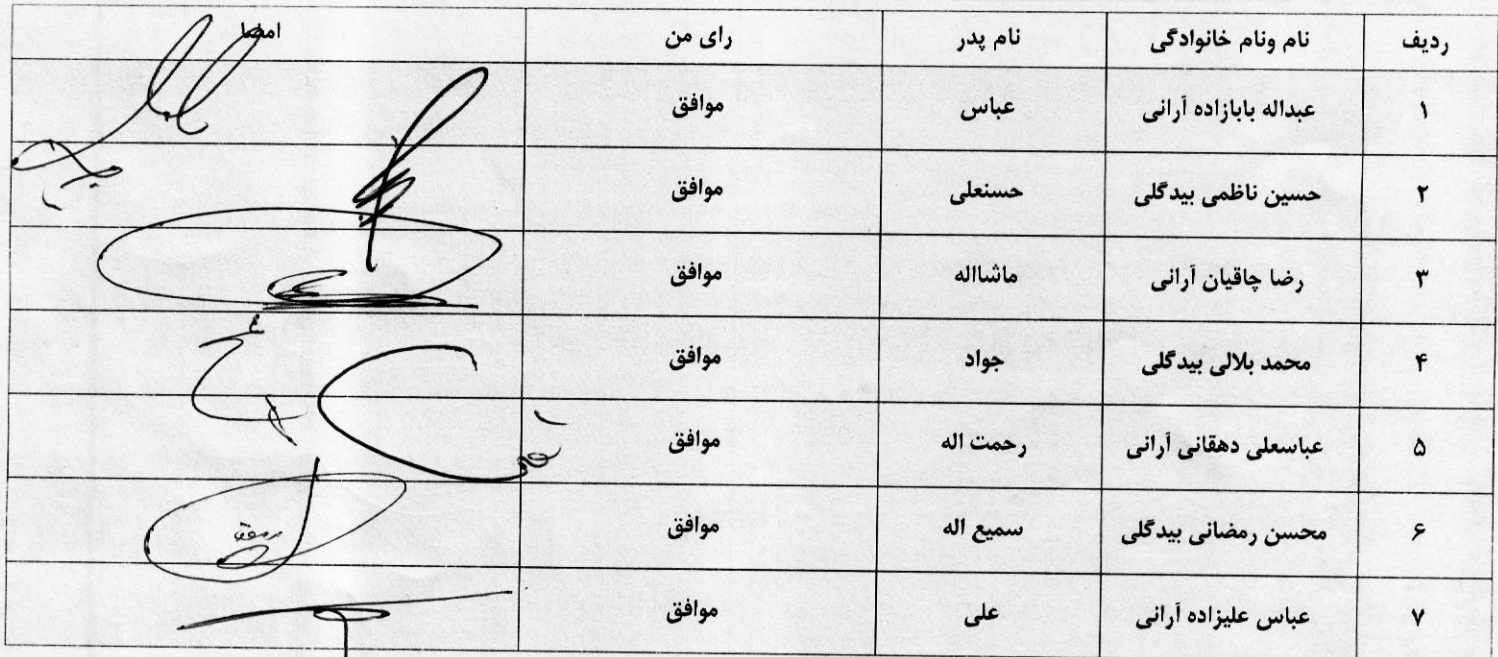 ردیف نام ونام خانوادگی نام پدر رای من امضا
۱ عبداله بابازاده آرانی عباس موافق
۲ حسین ناظمی بیدگلی حسنعلی موافق
۳ رضا چاقیان آرانی ماشااله موافق
۴ محمد بلالی بیدگلی جواد موافق
۵ عباسعلی دهقانی آرانی رحمت اله موافق
۶ محسن رمضانی بیدگلی سمیع اله موافق
۷ عباس علیزاده آرانی علی موافق